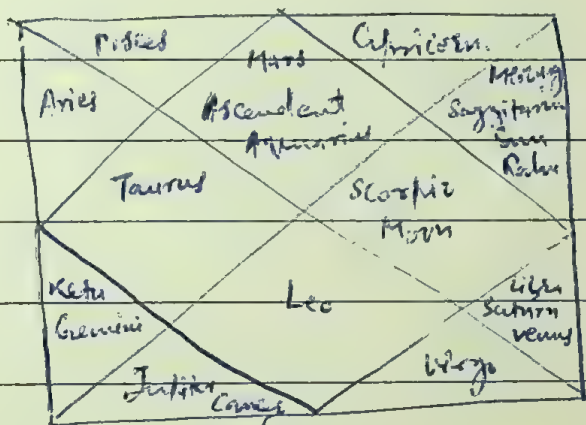 Pisces
Mars
Capricorn
Aries
Ascendant
Aquarius
Mercury
Saggitarius
Sun
Rahu
Taurus
Scorpio
Moon
Ketu
Gemini
Leo
Libra
Saturn
Venus
Jupiter
Cancer
Virgo